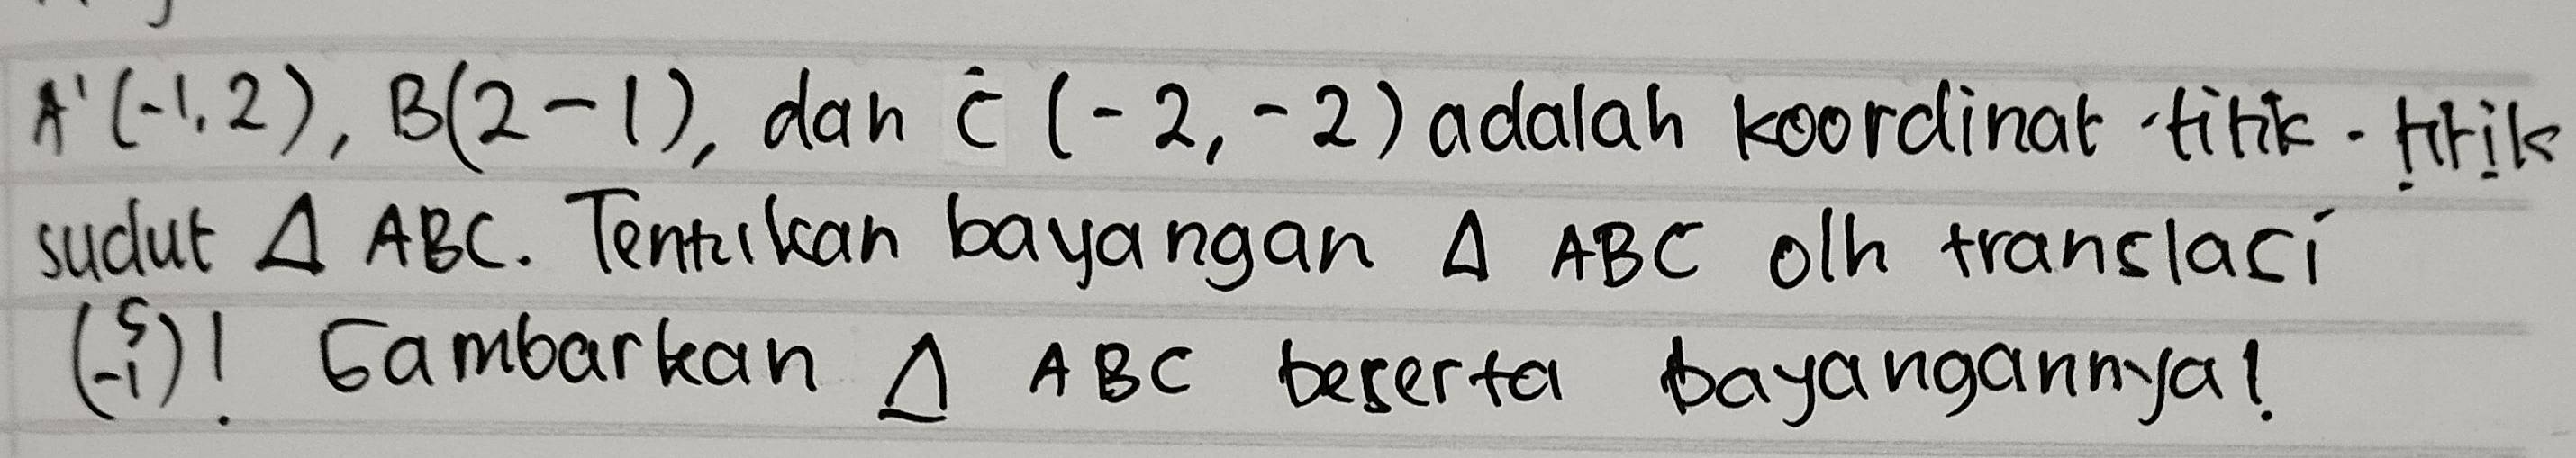 A'(-1,2), B(2-1), dan C (-2,-2) adalah koordinat titik-titik
sudut Δ ABC. Tentukan bayangan Δ ABC olh translasi
(5 -1)! Gambarkan Δ ABC beserta bayangannya!